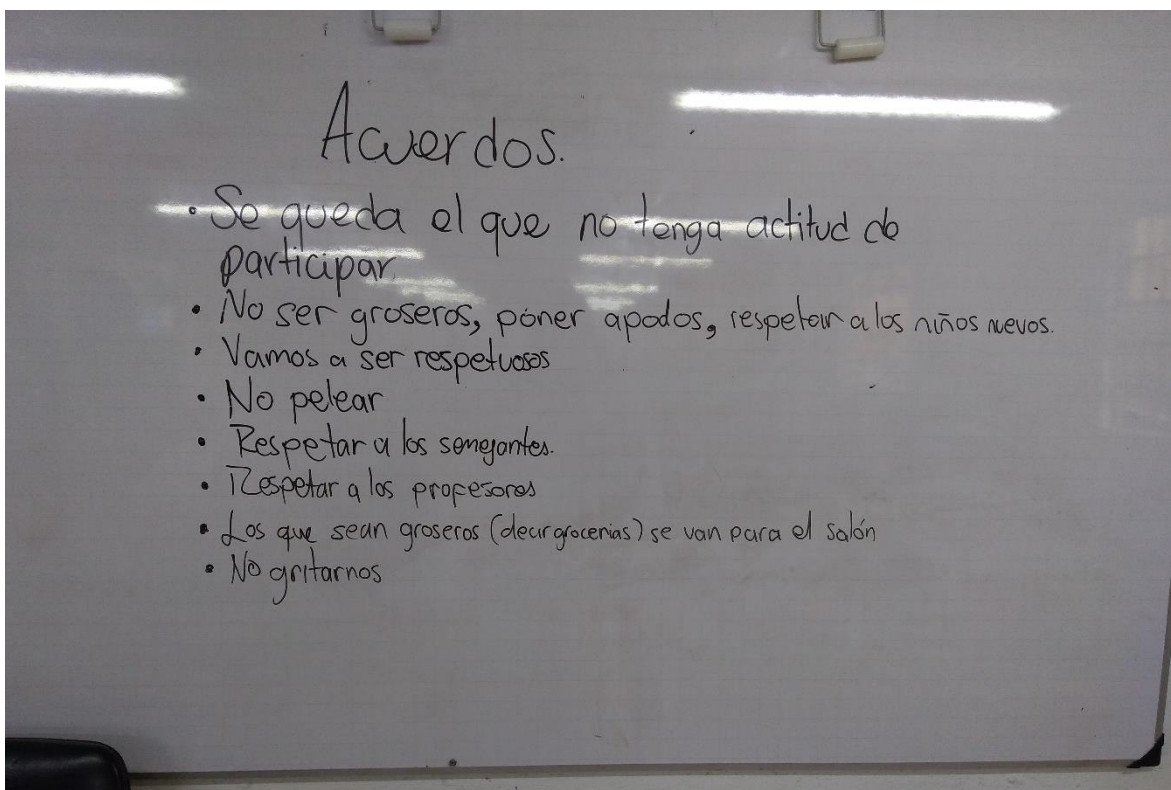 Acuerdos.
• Se queda el que no tenga actitud de
participar.
• No ser groseros, poner apodos, respetar a los niños nuevos.
• Vamos a ser respetuosos
• No pelear
• Respetar a los semejantes.
• Respetar a los profesores
• Los que sean groseros (decir grocerias) se van para el salón
• No gritarnos